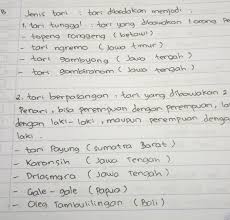 B Jenis tari : tari dibedakan menjadi
1. tari tunggal : tari yang dibawakan 1 orang Pe
- topeng ronggeng (betawi)
- tari ngremo (Jawa timur)
- tari gambyong (Jawa tengah)
- tari gambiranom (Jawa tengah)
2. tari berpasangan : tari yang dibawakan 2
Penari, bisa perempuan dengan perempuan, la
dengan laki-laki, maupun perempuan denga
laki.
- tari Payung (Sumatra Barat)
- Karonsih (Jawa Tengah)
- (Jawa Tengah)
- Gale-gale (Papua)
- Oleg Tambulilingan (Bali)